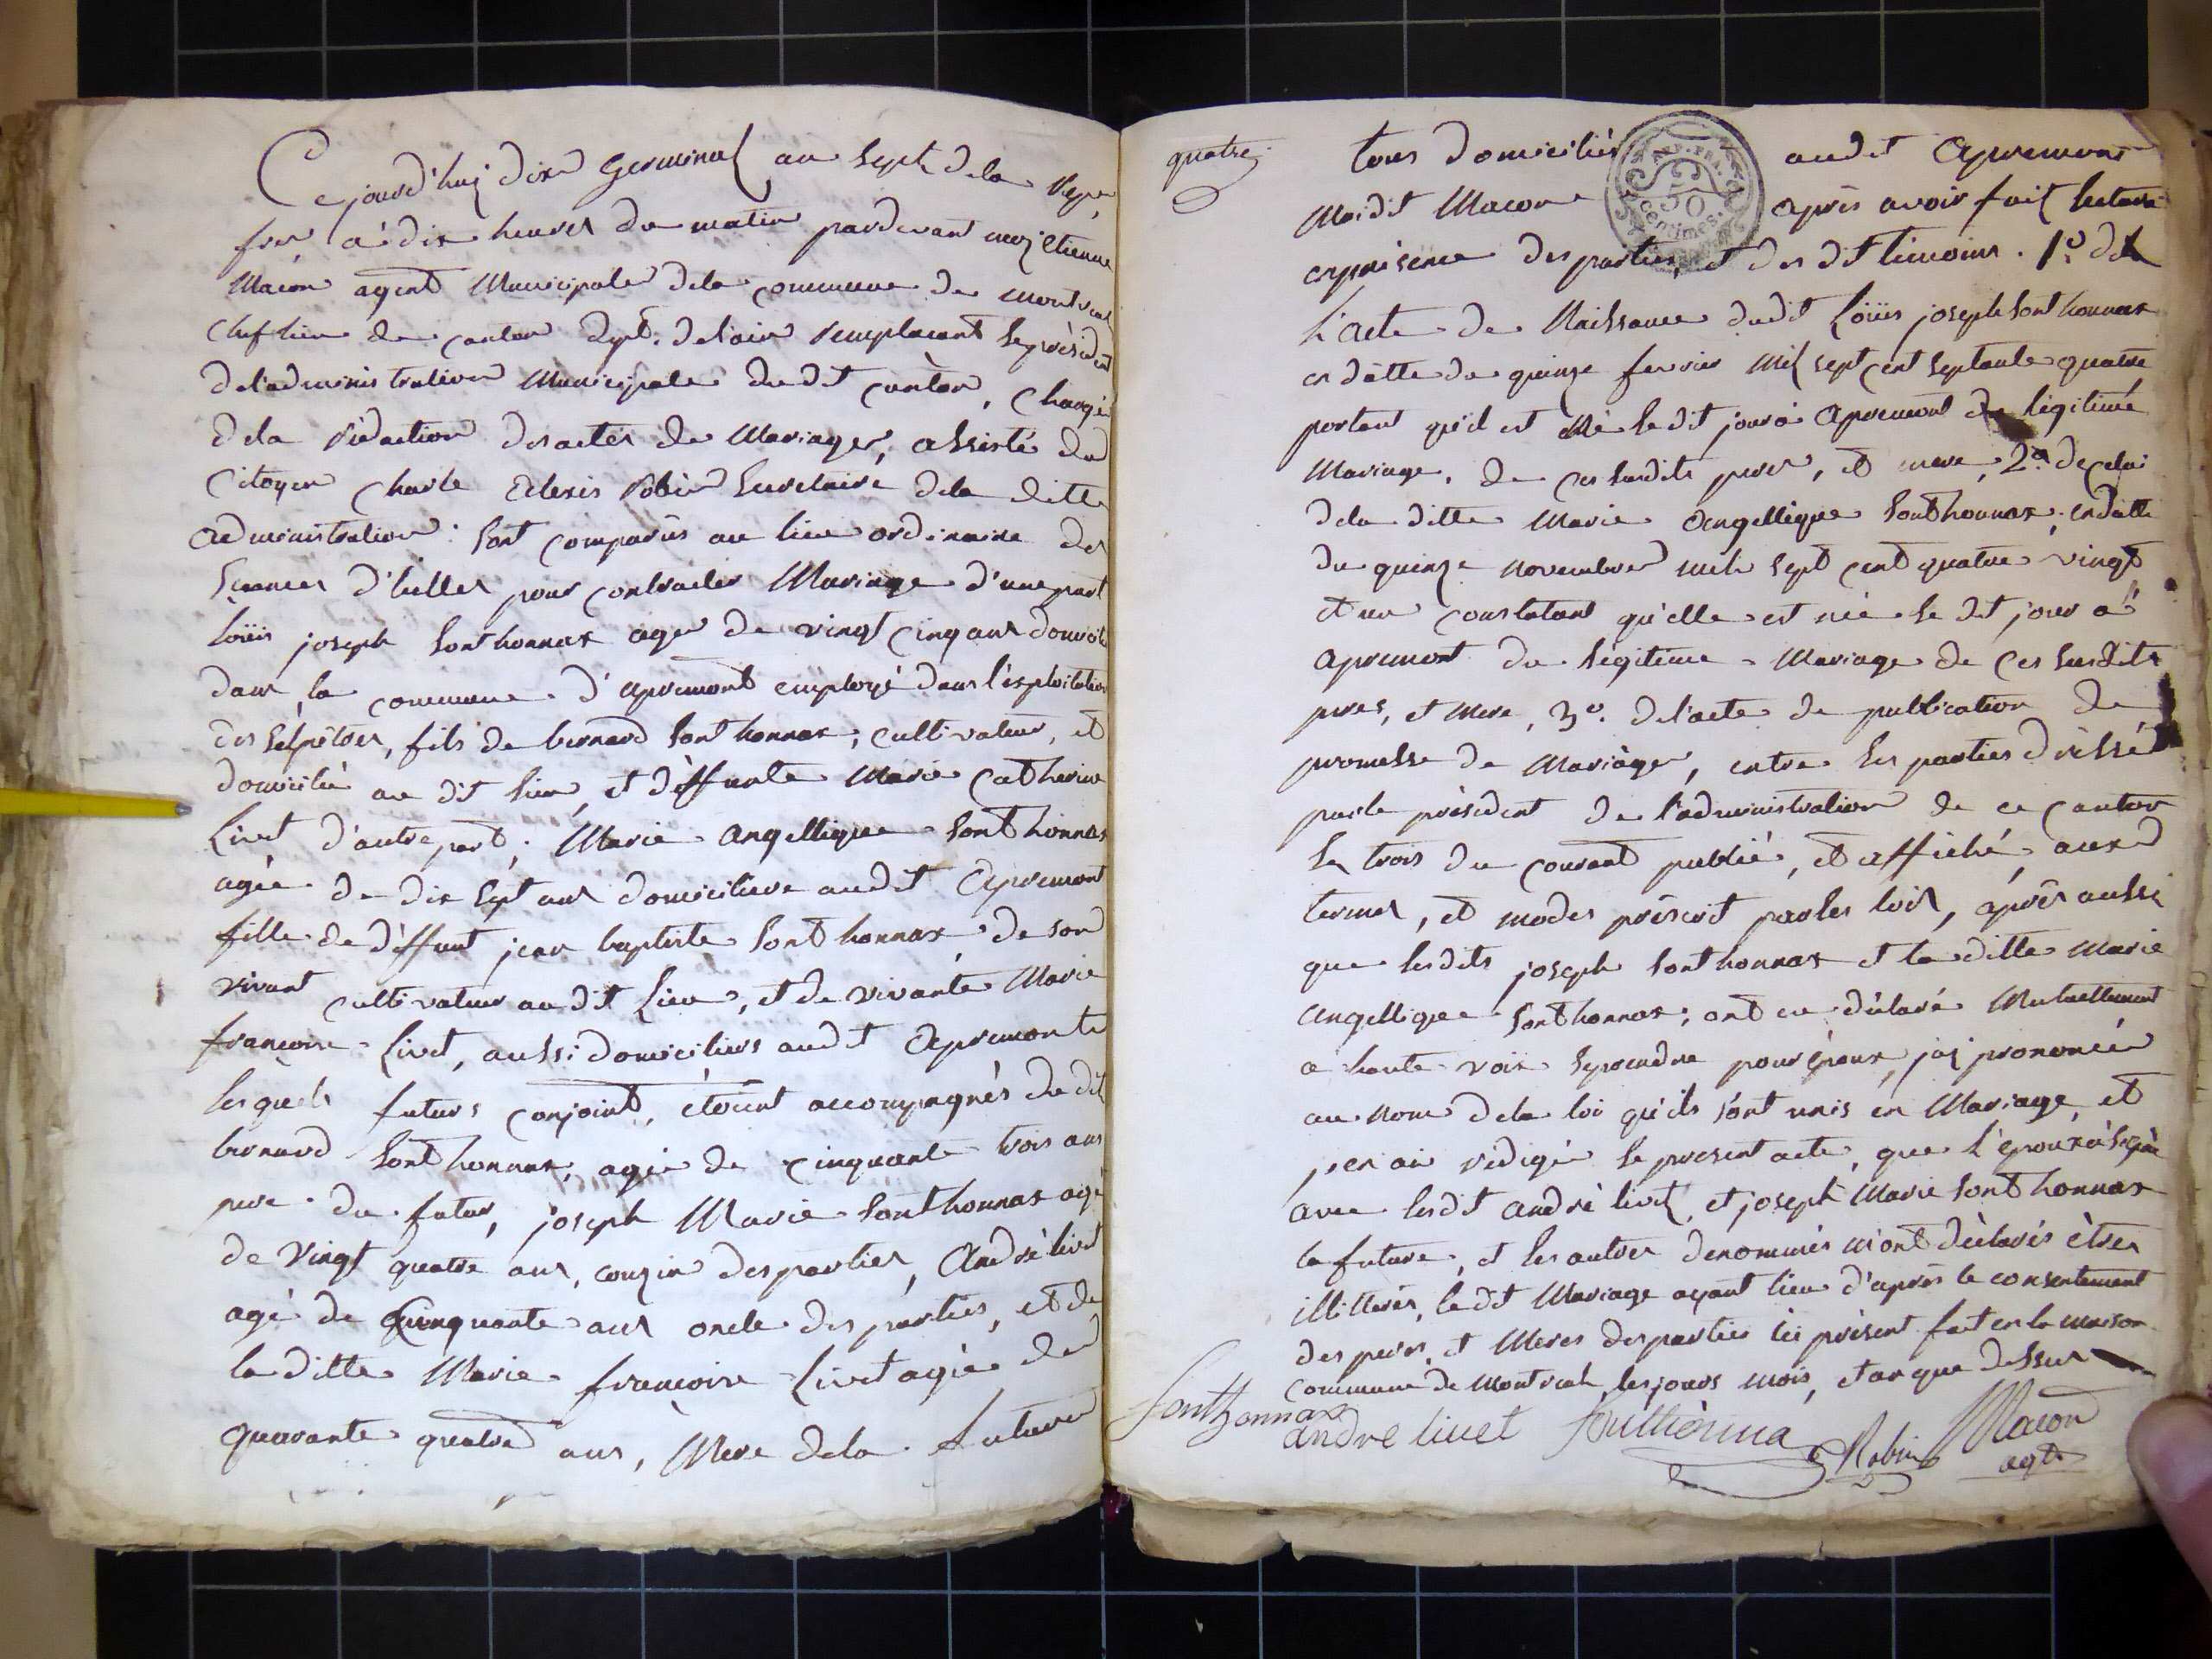 Cejourd'huj dix Germinal an sept dela Repe
fran à dix heures du matin pardevant moj Etienne
Macon agent Municipale dela commune de montreal
Chef lieu de canton dept. delain remplacant le présidt
deladministration Municipale dudit canton, chargé
dela rédaction desactes de Mariages, assisté du
Citoyen Charle Alexis Robin Secretaire dela ditte
administration : sont comparus au lieu ordinaire des
seances d'icelles pour contracter Mariage d'une part
Loüis joseph Sonthonnax agé de vingt cinq ans domicilié
dans la commune d'apremont employé dans l'exploitation
des salpêtres, fils de bernard Sonthonnax, cultivateur, et
domicilié au dit lieu, et déffunte Marie Catherine
Livet d'autre part, Marie angellique Sonthonnax
agée de dix sept ans domiciliere audit Apremont
fille de déffunt jean baptiste Sonthonnax de son
vivant cultivateur au dit Lieu, et de vivante Marie
francoise Livet, aussi domiciliers audit Apremont
lesquels futurs conjoint, étoient accompagnés dudit
bernard Sonthonnax, agé de cinquante trois ans
pere du futur, joseph Marie Sonthonnax agé
de vingt quatre ans, couzin desparties, André livet
agé de Cinquante ans oncle des parties, et de
la ditte Marie francoise Livet agée de
quarante quatre ans, Mere dela future
quatre
tous domiciliés audit Apremont
Moidit Macon après avoir fait lecture
enpresence des parties, et des dit temoins. 1º. de
L'acte de Naissance dudit Loüis joseph Sonthonnax
en datte du quinze fevrier Mil sept cent septante quatre
portant qu'il est Né le dit jour à Apremont de légitime
Mariage, de ces susdits peres, et mere, 2º. de celui
dela ditte Marie Angellique Sonthonnax, endatte
du quinze novembre mil sept cent quatre vingt
et un constatant qu'elle est née le dit jour à
apremont du légitime Mariage de ces susdits
peres, et Mere, 3º. de l'acte de publication de
promesse de Mariage, entre les parties dréssé
parle président de l'administration de ce canton
le trois du courant publié, et affiché aux
termes, et modes préscrit par les lois, aprés aussi
que lesdits joseph Sonthonnax et la ditte Marie
angellique Sonthonnax, ont eu déclaré Mutuellement
a haute voix seprendre pour époux, jaj prononcé
au nom dela loi qu'ils sont unis en Mariage, et
jen ai rédigé le present acte, que l'epoux à signé
avec lesdit andré livet, et joseph Marie Sonthonnax
la future, et les autres denommés m'ont déclarés étres
illitterés, ledit Mariage ayant lieu d'après le consentement
des peres, et Meres desparties ici présent fait en la maison
Commune de Montreal, lesjours mois, et an que dessus
Sonthonnax
andre livet Robin Macon
agt
REP. FRA.
50
centimes.